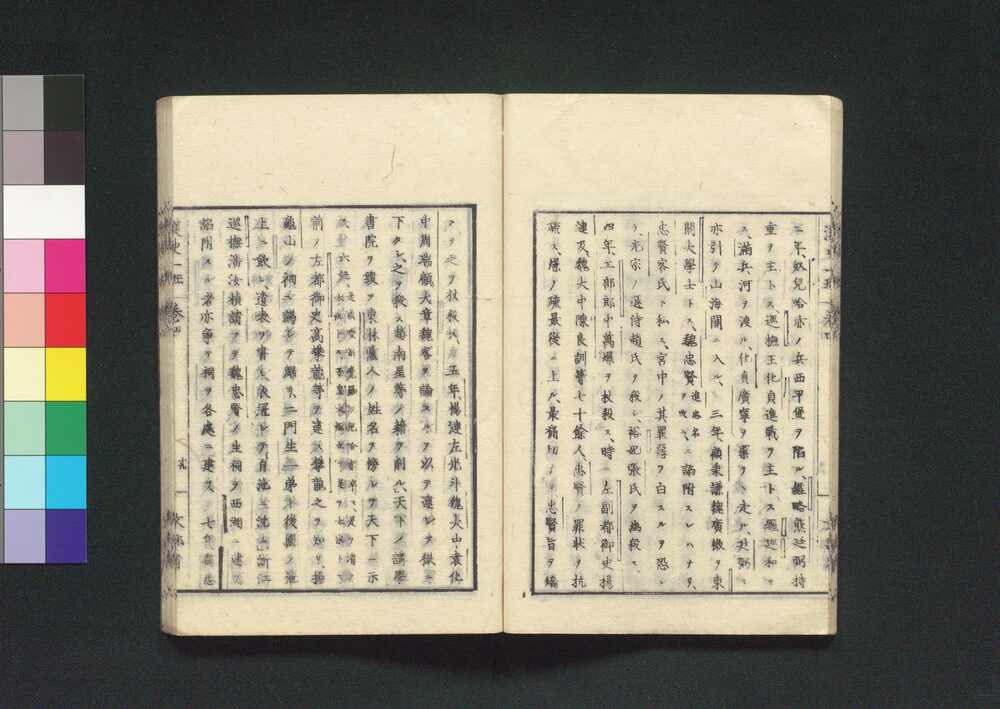 二年、奴兒哈赤ノ兵西平堡ヲ陷ル、經略熊廷弼持
重ヲ主トス、巡撫王化貞進戰ヲ主トス廷弼和セ
ス、滿兵、河ヲ渡ル、化貞廣寧ヲ棄テ走ル、廷弼モ
亦引テ山海關ニ入ル、三年、顧秉謙魏廣微ヲ東
閣大學士トス、魏忠賢ニ諂附スレハナリ、
忠賢客氏ト私ス、宮中ノ其罪惡ヲ白スルヲ恐レ
テ、光宗ノ選侍趙氏ヲ殺シ、裕妃張氏ヲ幽殺ス、
四年、工部郎中萬燝ヲ杖殺ス、時ニ左副都御史楊
漣及ヒ魏大中陳良訓等七十餘人、忠賢ノ罪狀ヲ抗
疏ス、燝ノ疏最後ニ上ル、最痛切ナリ忠賢旨ヲ矯
メテ之ヲ杖殺ス、五年楊漣左光斗魏大中袁化
中周瑞顧大章魏客ヲ論スルヲ以テ還シテ獄ニ
下タシ、之ヲ殺ス趙南星等ノ籍ヲ削ル、天下ノ講學
書院ヲ毀ツ東林黨人ノ姓名ヲ榜シテ天下ニ示
ス六年、
前ノ左都御史高攀龍等ヲ逮ス攀龍之ヲ知リ、楊
龜山ノ祠ニ謁シテ歸リ、二門生一弟ト後園ノ池
上ニ飲ム、遺表ヲ書シ衣冠シテ自池ニ沈ム浙江
巡撫潘汝楨請フテ魏忠賢ノ生祠ヲ西湖ニ建ツ
諂附スル者亦爭テ祠ヲ各處ニ建ス、七年
文部省